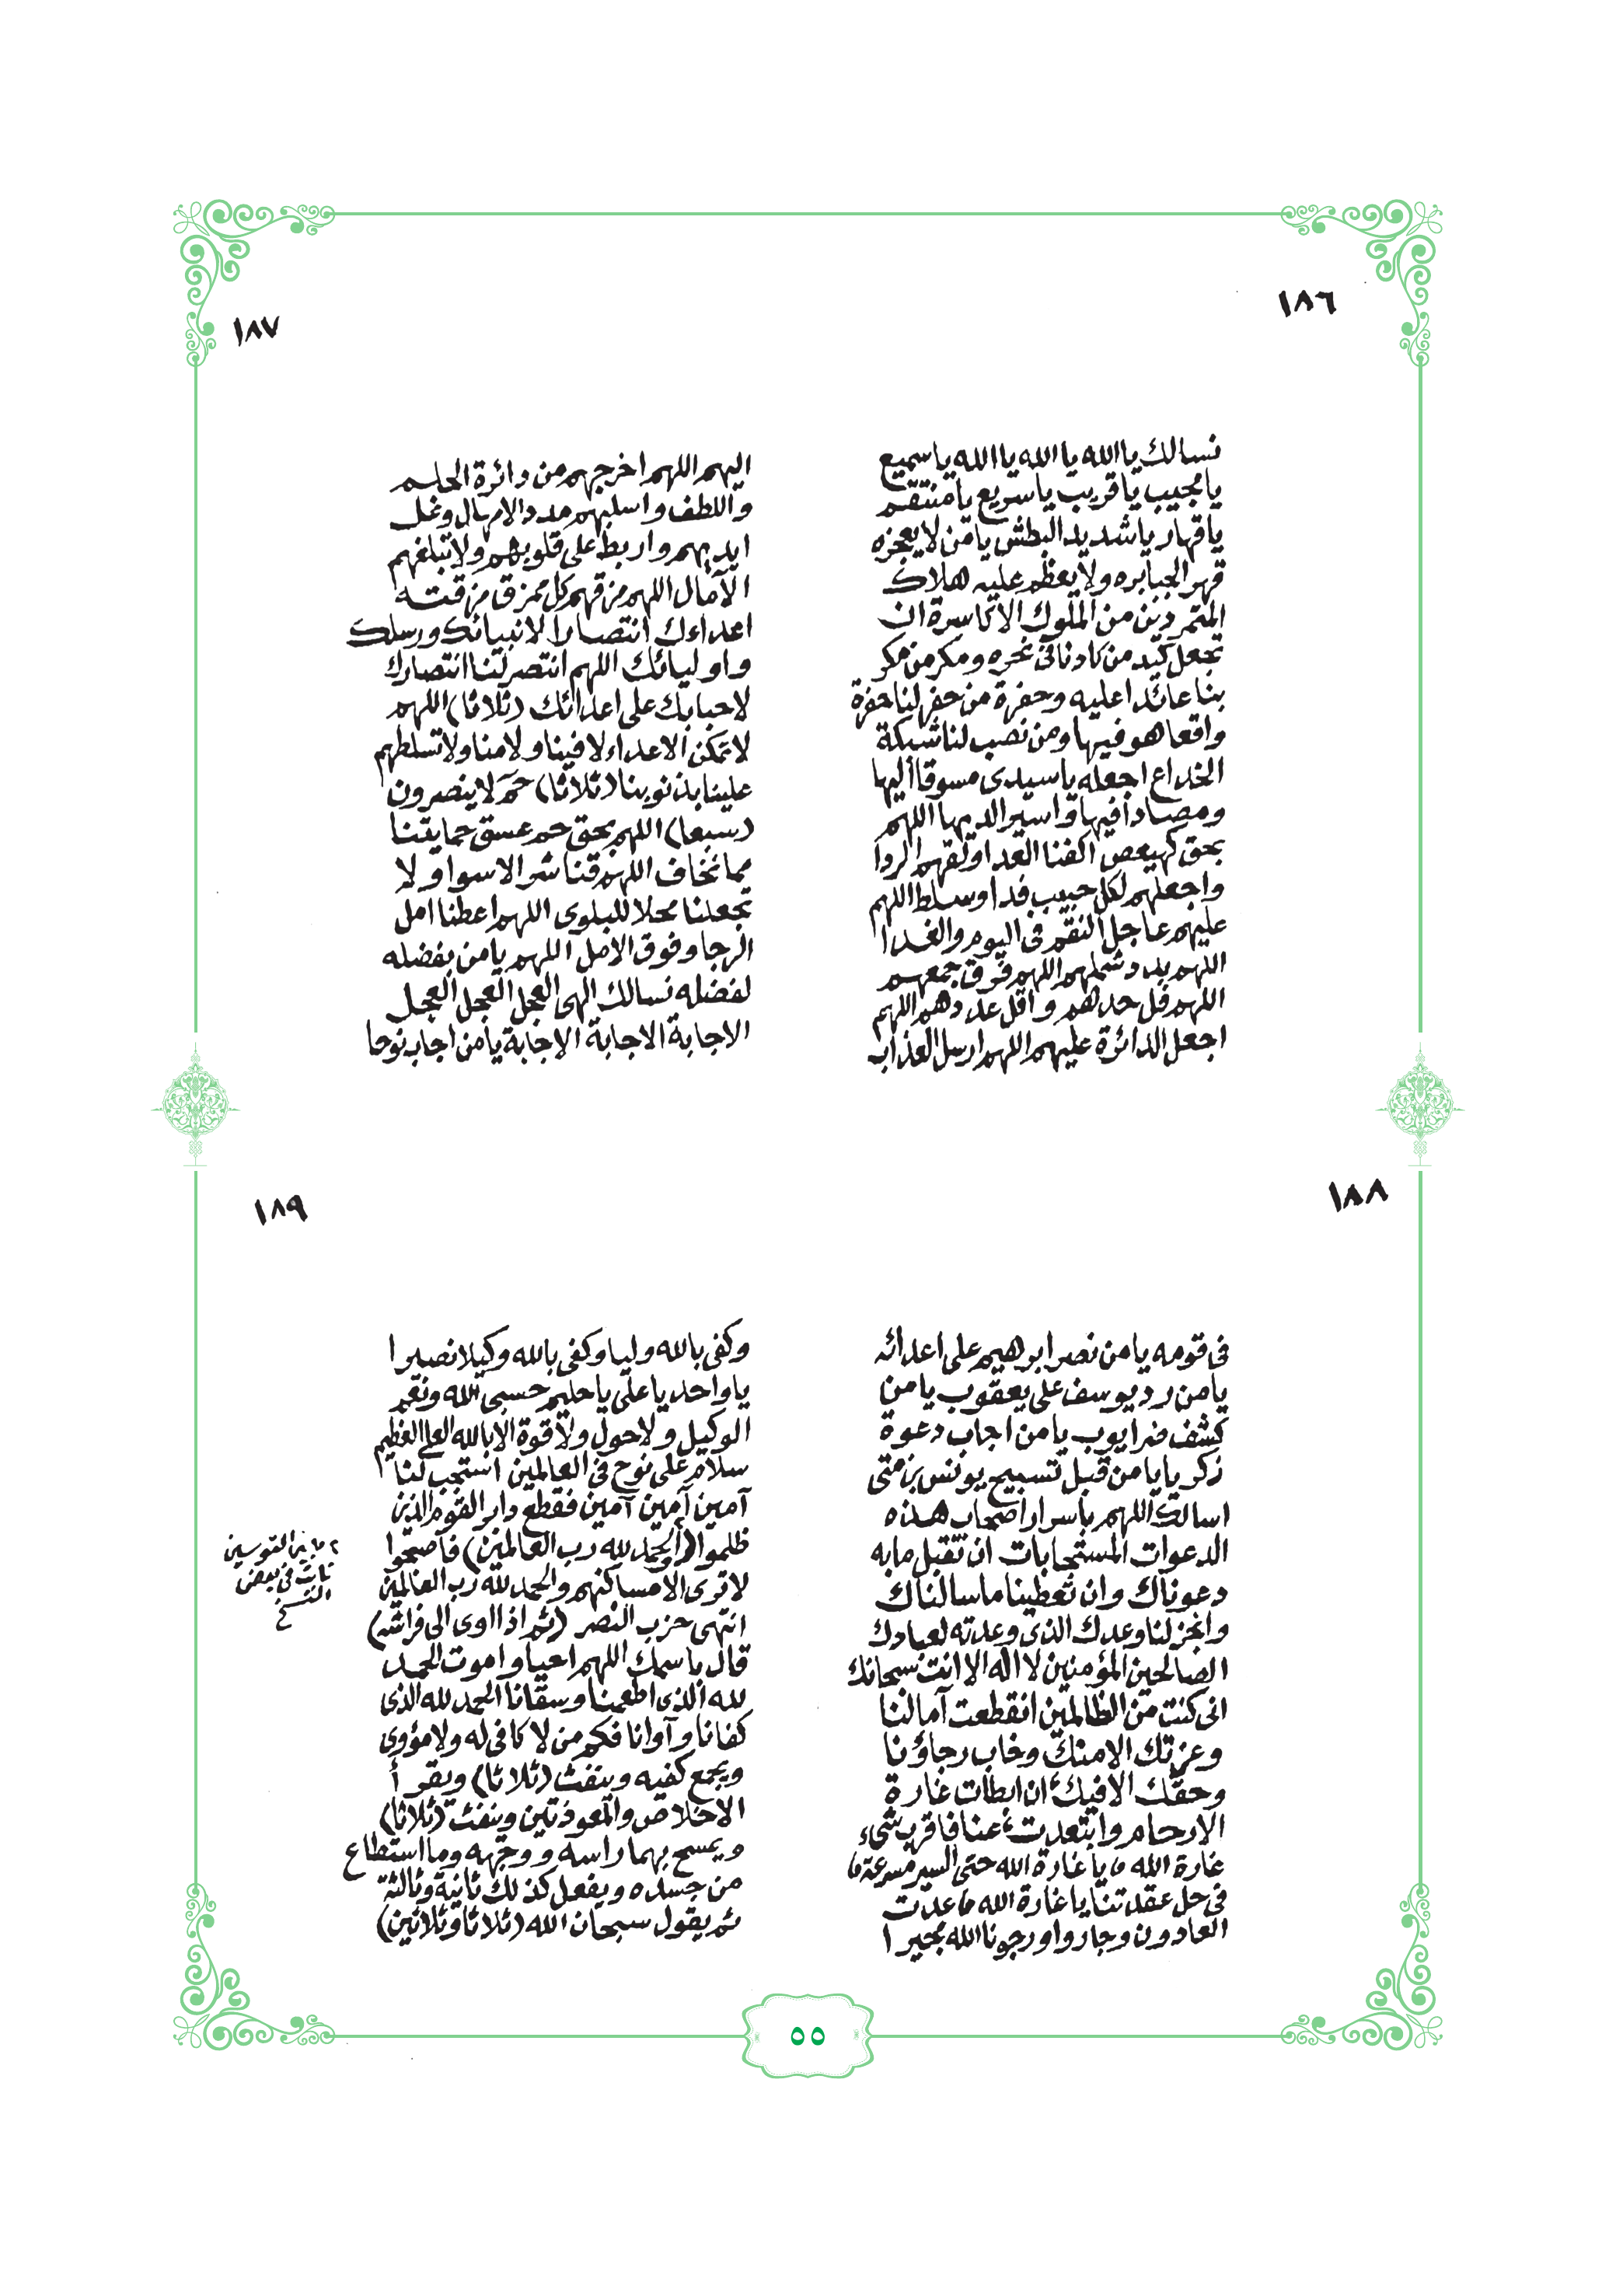 ١٨٦
نسالك يا الله يا الله يا الله يا سميع
يا مجيب يا قريب يا سريع يا منتقم
يا قهار يا شديد البطش يا من لا يعجزه
قهر الجبابره ولا يعظم عليه هلاك
المتمردين من الملوك الاكاسرة ان
تجعل كيد من كادنا في نحره ومكر من مكر
بنا عائدا عليه وحفرة من حفر لنا حفرة
واقعا هو فيها ومن نصب لنا شبكة
الخداع اجعله يا سيدى مسوقا أليها
ومصادا فيها واسيرا لديها اللهم
بحق كهيعص اكفنا العدا ولقهم الردا
واجعلهم لكل حبيب فدا وسلط اللهم
عليهم عاجل النقم فى اليوم والغدا
اللهم بدد شملهم اللهم فرق جمعهم
اللهم فل حدهم واقل عددهم اللهم
اجعل الدائرة عليهم اللهم ارسل العذاب
١٨٧
اليهم اللهم اخرجهم من دائرة الحلم
واللطف واسلبهم مدد الامهال وغل
ايديهم واربط على قلوبهم ولا تبلغهم
الآمال اللهم مزقهم كل ممزق مزقته
اعداءك انتصارا لانبيائك ورسلك
واوليائك اللهم انتصر لنا انتصارك
لاحبابك على اعدائك (ثلاثا) اللهم
لا تمكن الاعداء لا فينا ولا منا ولا تسلطهم
علينا بذنوبنا (ثلاثا) حم لا ينصرون
(سبعا) اللهم بحق حم عسق حمايتنا
مما نخاف اللهم قنا شر الاسوا ولا
تجعلنا محلا للبلوى اللهم اعطنا امل
الرجا وفوق الامل اللهم يا من بفضله
لفضله نسالك الهى العجل العجل العجل
الاجابة الاجابة الاجابة يا من اجاب نوحا
١٨٨
فى قومه يا من نصر ابرهيم على اعدائه
يا من رد يوسف على يعقوب يا من
كشف ضر ايوب يا من اجاب دعوة
زكريا يا من قبل تسبيح يونس بن متى
اسالك اللهم باسرار اصحاب هذه
الدعوات المستجابات ان تقبل ما به
دعوناك وان تعطينا ما سالناك
وانجز لنا وعدك الذى وعدته لعبادك
الصالحين المؤمنين لا اله الا انت سبحانك
انى كنت من الظالمين انقطعت آمالنا
وعزتك الا منك وخاب رجاؤنا
وحقك الا فيك ان ابطات غارة
الارحام وابتعدت عنا فاقرب شىء
غارة الله يا غارة الله حتى السير مسرعة
فى حل عقدتنا يا غارة الله عدت
العادون وجاروا ورجونا الله مجيرا
١٨٩
وكفى بالله وليا وكفى بالله وكيلا نصيرا
يا واحد يا على يا حليم حسبى الله ونعم
الوكيل ولا حول ولا قوة الا بالله العلى العظيم
سلام على نوح فى العالمين استجب لنا
آمين آمين آمين فقطع دابر القوم الذين
ظلموا (والحمد لله رب العالمين) فاصبحوا
لا ترى الا مساكنهم والحمد لله رب العالمين
انتهى حزب النصر (ثم اذا اوى الى فراشه)
قال باسمك اللهم احيا واموت الحمد
لله الذى اطعمنا وسقانا الحمد لله الذى
كفانا وآوانا فكم من لا كافى له ولا مؤوى
ويجمع كفيه وينفث (ثلاثا) ويقرأ
الاخلاص والمعوذتين وينفث (ثلاثا)
ويمسح بهما راسه ووجهه وما استطاع
من جسده ويفعل كذلك ثانية وثالثة
ثم يقول سبحان الله (ثلاثا وثلاثين)
ما بين القوسين
ثابت فى بعض
النسخ
٥٥